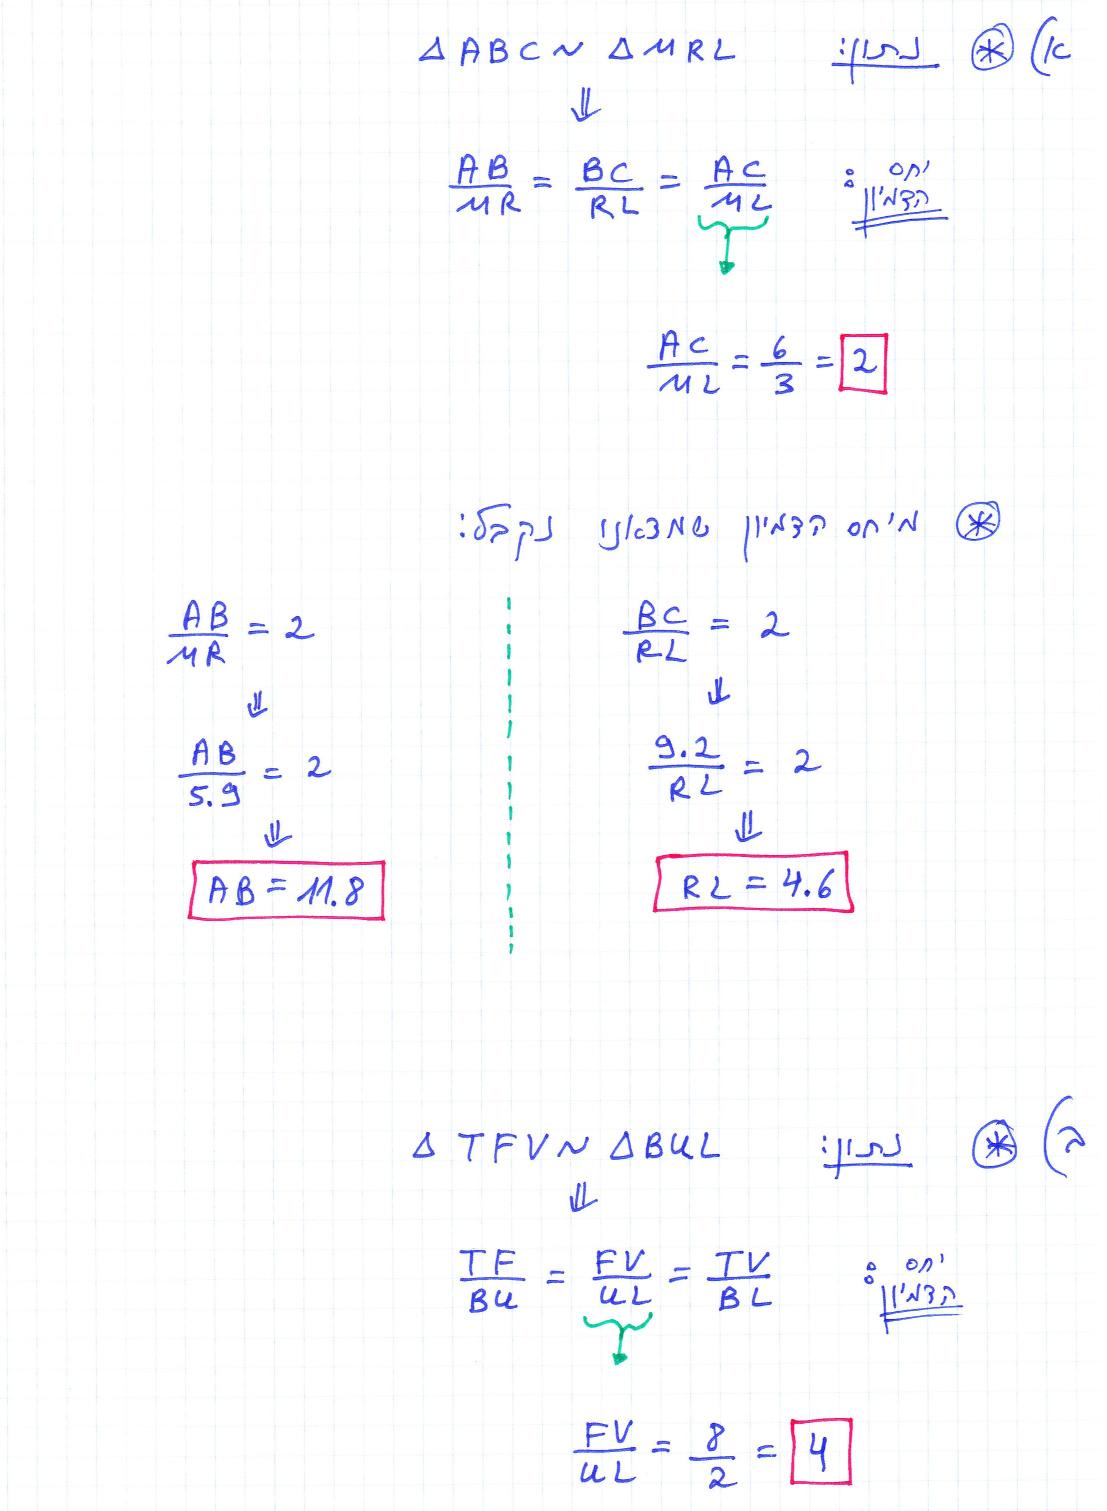 א) * נתון: Δ ABC ~ Δ MRL
⇓
יחס הדמיון: AB/MR = BC/RL = AC/ML
AC/ML = 6/3 = 2
* מיחס הדמיון שמצאנו נקבל:
BC/RL = 2
⇓
9.2/RL = 2
⇓
RL = 4.6
AB/MR = 2
⇓
AB/5.9 = 2
⇓
AB = 11.8
ב) * נתון: Δ TFV ~ Δ BUL
⇓
יחס הדמיון: TF/BU = FV/UL = TV/BL
FV/UL = 8/2 = 4